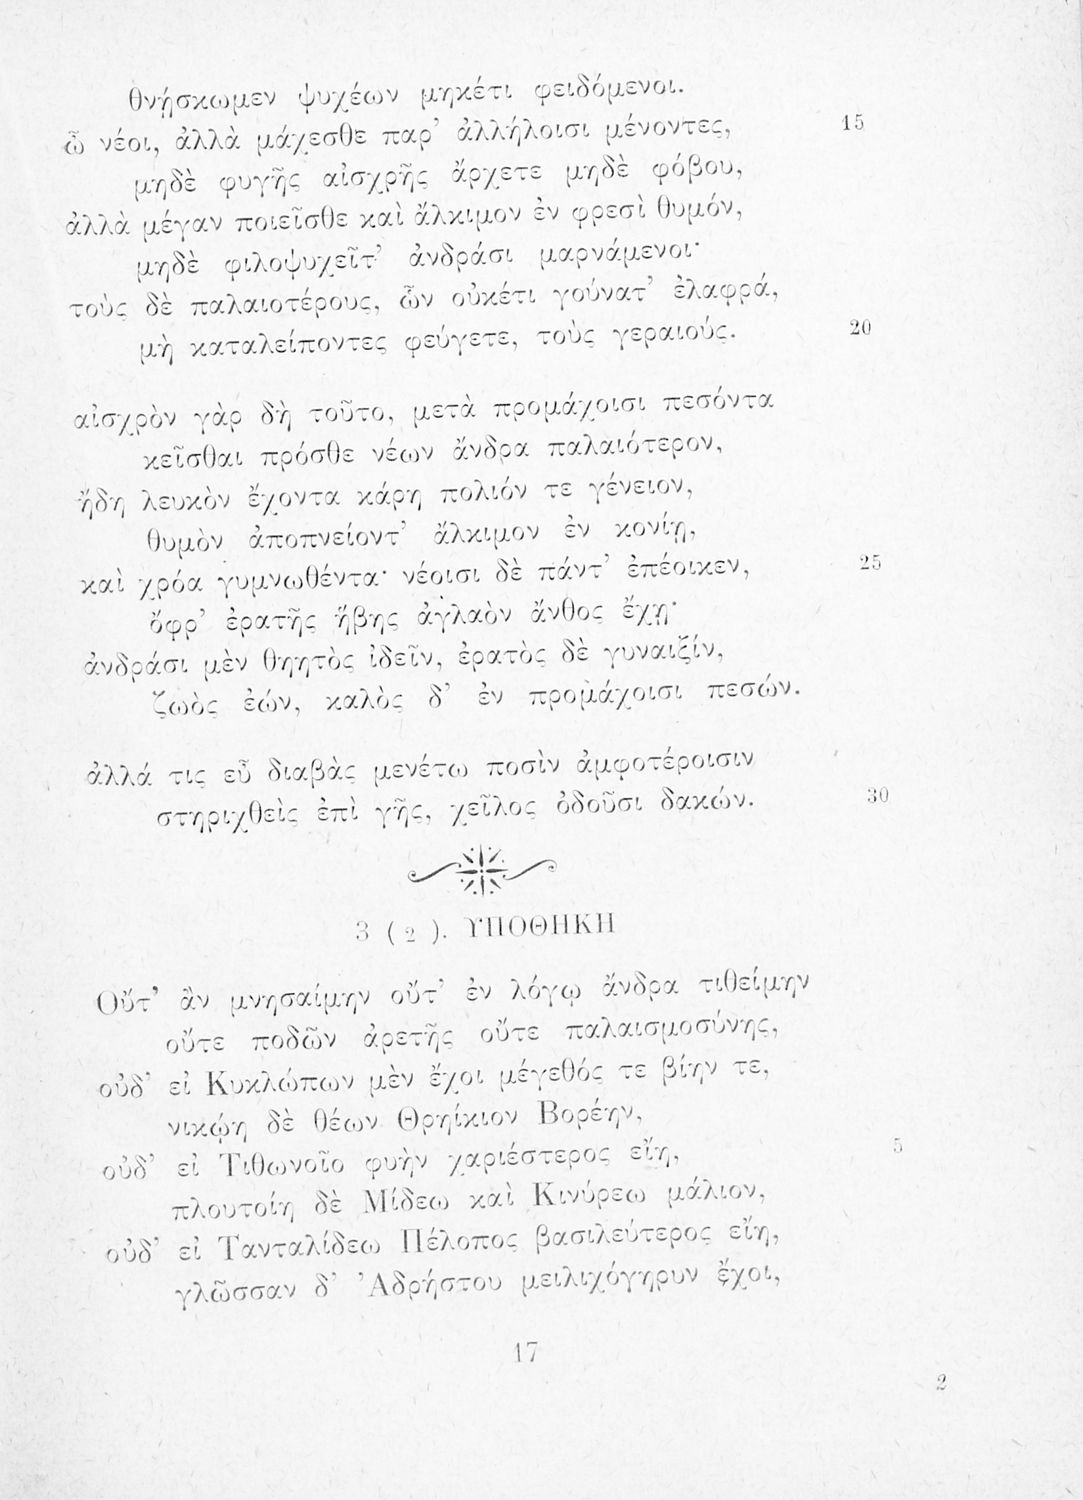 θνῄσκωμεν ψυχέων μηκέτι φειδόμενοι.
ὦ νέοι, ἀλλὰ μάχεσθε παρ' ἀλλήλοισι μένοντες, 15
μηδὲ φυγῆς αἰσχρῆς ἄρχετε μηδὲ φόβου,
ἀλλὰ μέγαν ποιεῖσθε καὶ ἄλκιμον ἐν φρεσὶ θυμόν,
μηδὲ φιλοψυχεῖτ' ἀνδράσι μαρνάμενοι·
τοὺς δὲ παλαιοτέρους, ὧν οὐκέτι γούνατ' ἐλαφρά,
μὴ καταλείποντες φεύγετε, τοὺς γεραιούς. 20
αἰσχρὸν γὰρ δὴ τοῦτο, μετὰ προμάχοισι πεσόντα
κεῖσθαι πρόσθε νέων ἄνδρα παλαιότερον,
ἤδη λευκὸν ἔχοντα κάρη πολιόν τε γένειον,
θυμὸν ἀποπνείοντ' ἄλκιμον ἐν κονίῃ,
καὶ χρόα γυμνωθέντα· νέοισι δὲ πάντ' ἐπέοικεν, 25
ὄφρ' ἐρατῆς ἥβης ἀγλαὸν ἄνθος ἔχῃ·
ἀνδράσι μὲν θηητὸς ἰδεῖν, ἐρατὸς δὲ γυναιξίν,
ζωὸς ἐών, καλὸς δ' ἐν προμάχοισι πεσών.
ἀλλά τις εὖ διαβὰς μενέτω ποσὶν ἀμφοτέροισιν
στηριχθεὶς ἐπὶ γῆς, χεῖλος ὀδοῦσι δακών. 30
3 (2). ΥΠΟΘΗΚΗ
Οὔτ' ἂν μνησαίμην οὔτ' ἐν λόγῳ ἄνδρα τιθείμην
οὔτε ποδῶν ἀρετῆς οὔτε παλαισμοσύνης,
οὐδ' εἰ Κυκλώπων μὲν ἔχοι μέγεθός τε βίην τε,
νικῴη δὲ θέων Θρηίκιον Βορέην,
οὐδ' εἰ Τιθωνοῖο φυὴν χαριέστερος εἴη, 5
πλουτοίη δὲ Μίδεω καὶ Κινύρεω μάλιον,
οὐδ' εἰ Τανταλίδεω Πέλοπος βασιλεύτερος εἴη,
γλῶσσαν δ' Ἀδρήστου μειλιχόγηρυν ἔχοι,
17
2